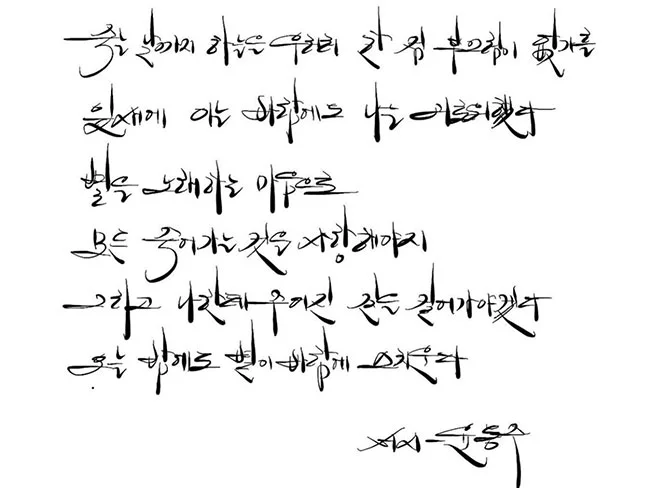 죽는 날까지 하늘을 우러러 한 점 부끄럼이 없기를
잎새에 이는 바람에도 나는 괴로워했다
별을 노래하는 마음으로
모든 죽어가는 것을 사랑해야지
그리고 나한테 주어진 길을 걸어가야겠다
오늘 밤에도 별이 바람에 스치운다
서시 - 윤동주